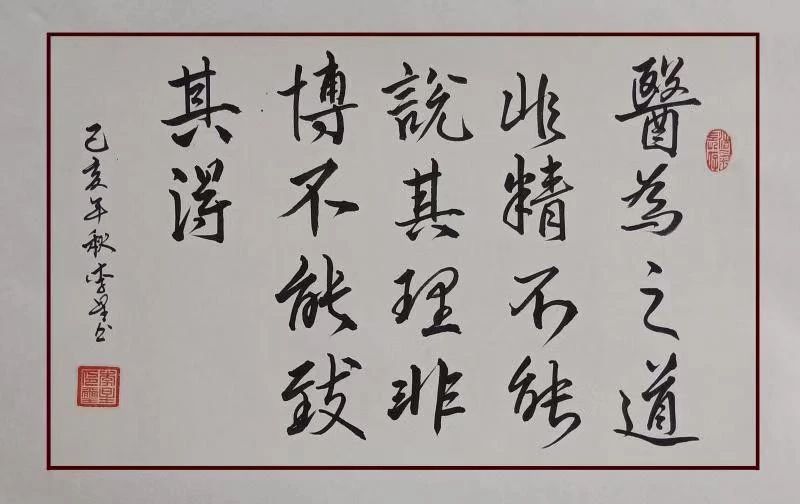 醫為之道
非精不能
說其理非
博不能致
其得
己亥年秋李星书